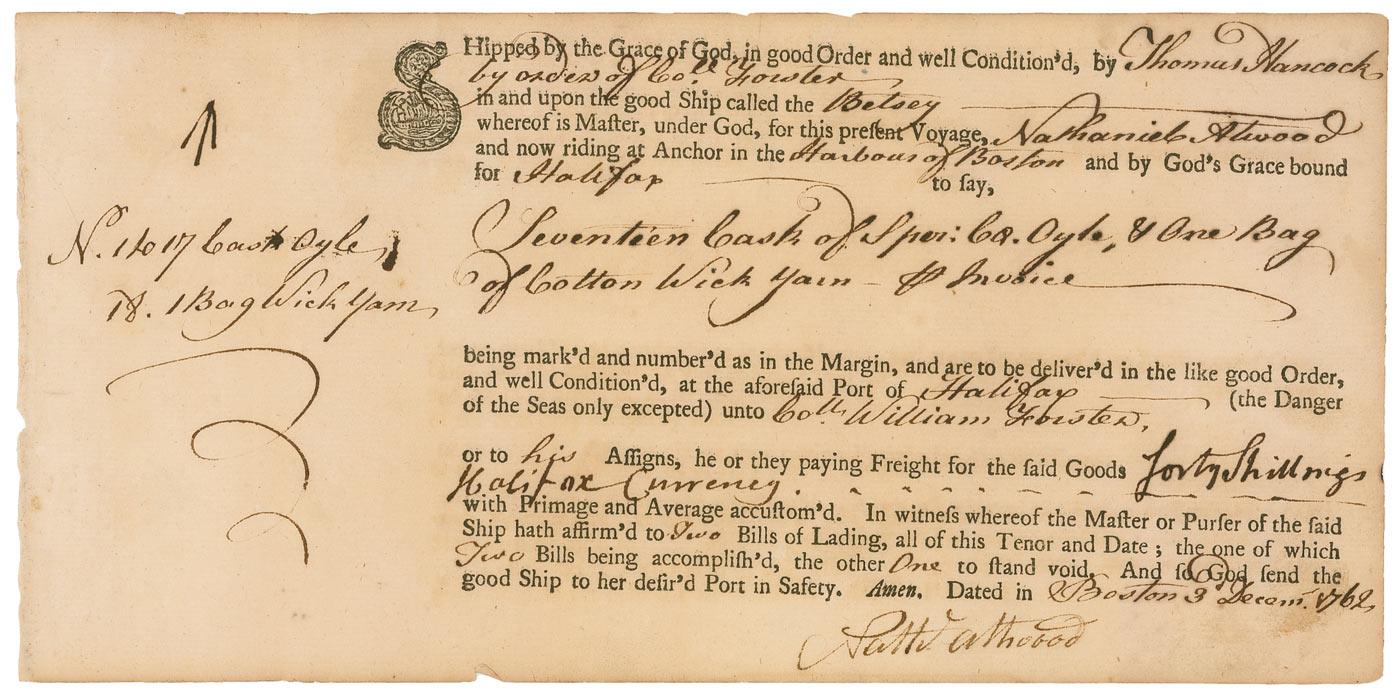 SHipped by the Grace of God, in good Order and well Condition'd, by Thomas Hancock
by order of Col. Forster
in and upon the good Ship called the Betsey
whereof is Maſter, under God, for this preſent Voyage, Nathaniel Atwood
and now riding at Anchor in the Harbour of Boston and by God's Grace bound
for Halifax to ſay,
No. 1 to 17 Cask Oyle,
18. 1 Bag Wick Yarn
Seventeen Cask of Sper: Ca. Oyle, & One Bag
of Cotton Wick Yarn - ⅌ Invoice
being mark'd and number'd as in the Margin, and are to be deliver'd in the like good Order,
and well Condition'd, at the aforeſaid Port of Halifax (the Danger
of the Seas only excepted) unto Coll. William Forster,
or to his Aſſigns, he or they paying Freight for the ſaid Goods forty Shillings
Halifax Currency
with Primage and Average accuſtom'd. In witneſs whereof the Maſter or Purſer of the ſaid
Ship hath affirm'd to Two Bills of Lading, all of this Tenor and Date ; the one of which
Two Bills being accompliſh'd, the other One to ſtand void. And ſo God ſend the
good Ship to her deſir'd Port in Safety. Amen. Dated in Boston 3d Decem. 1762
Nathl. Atwood